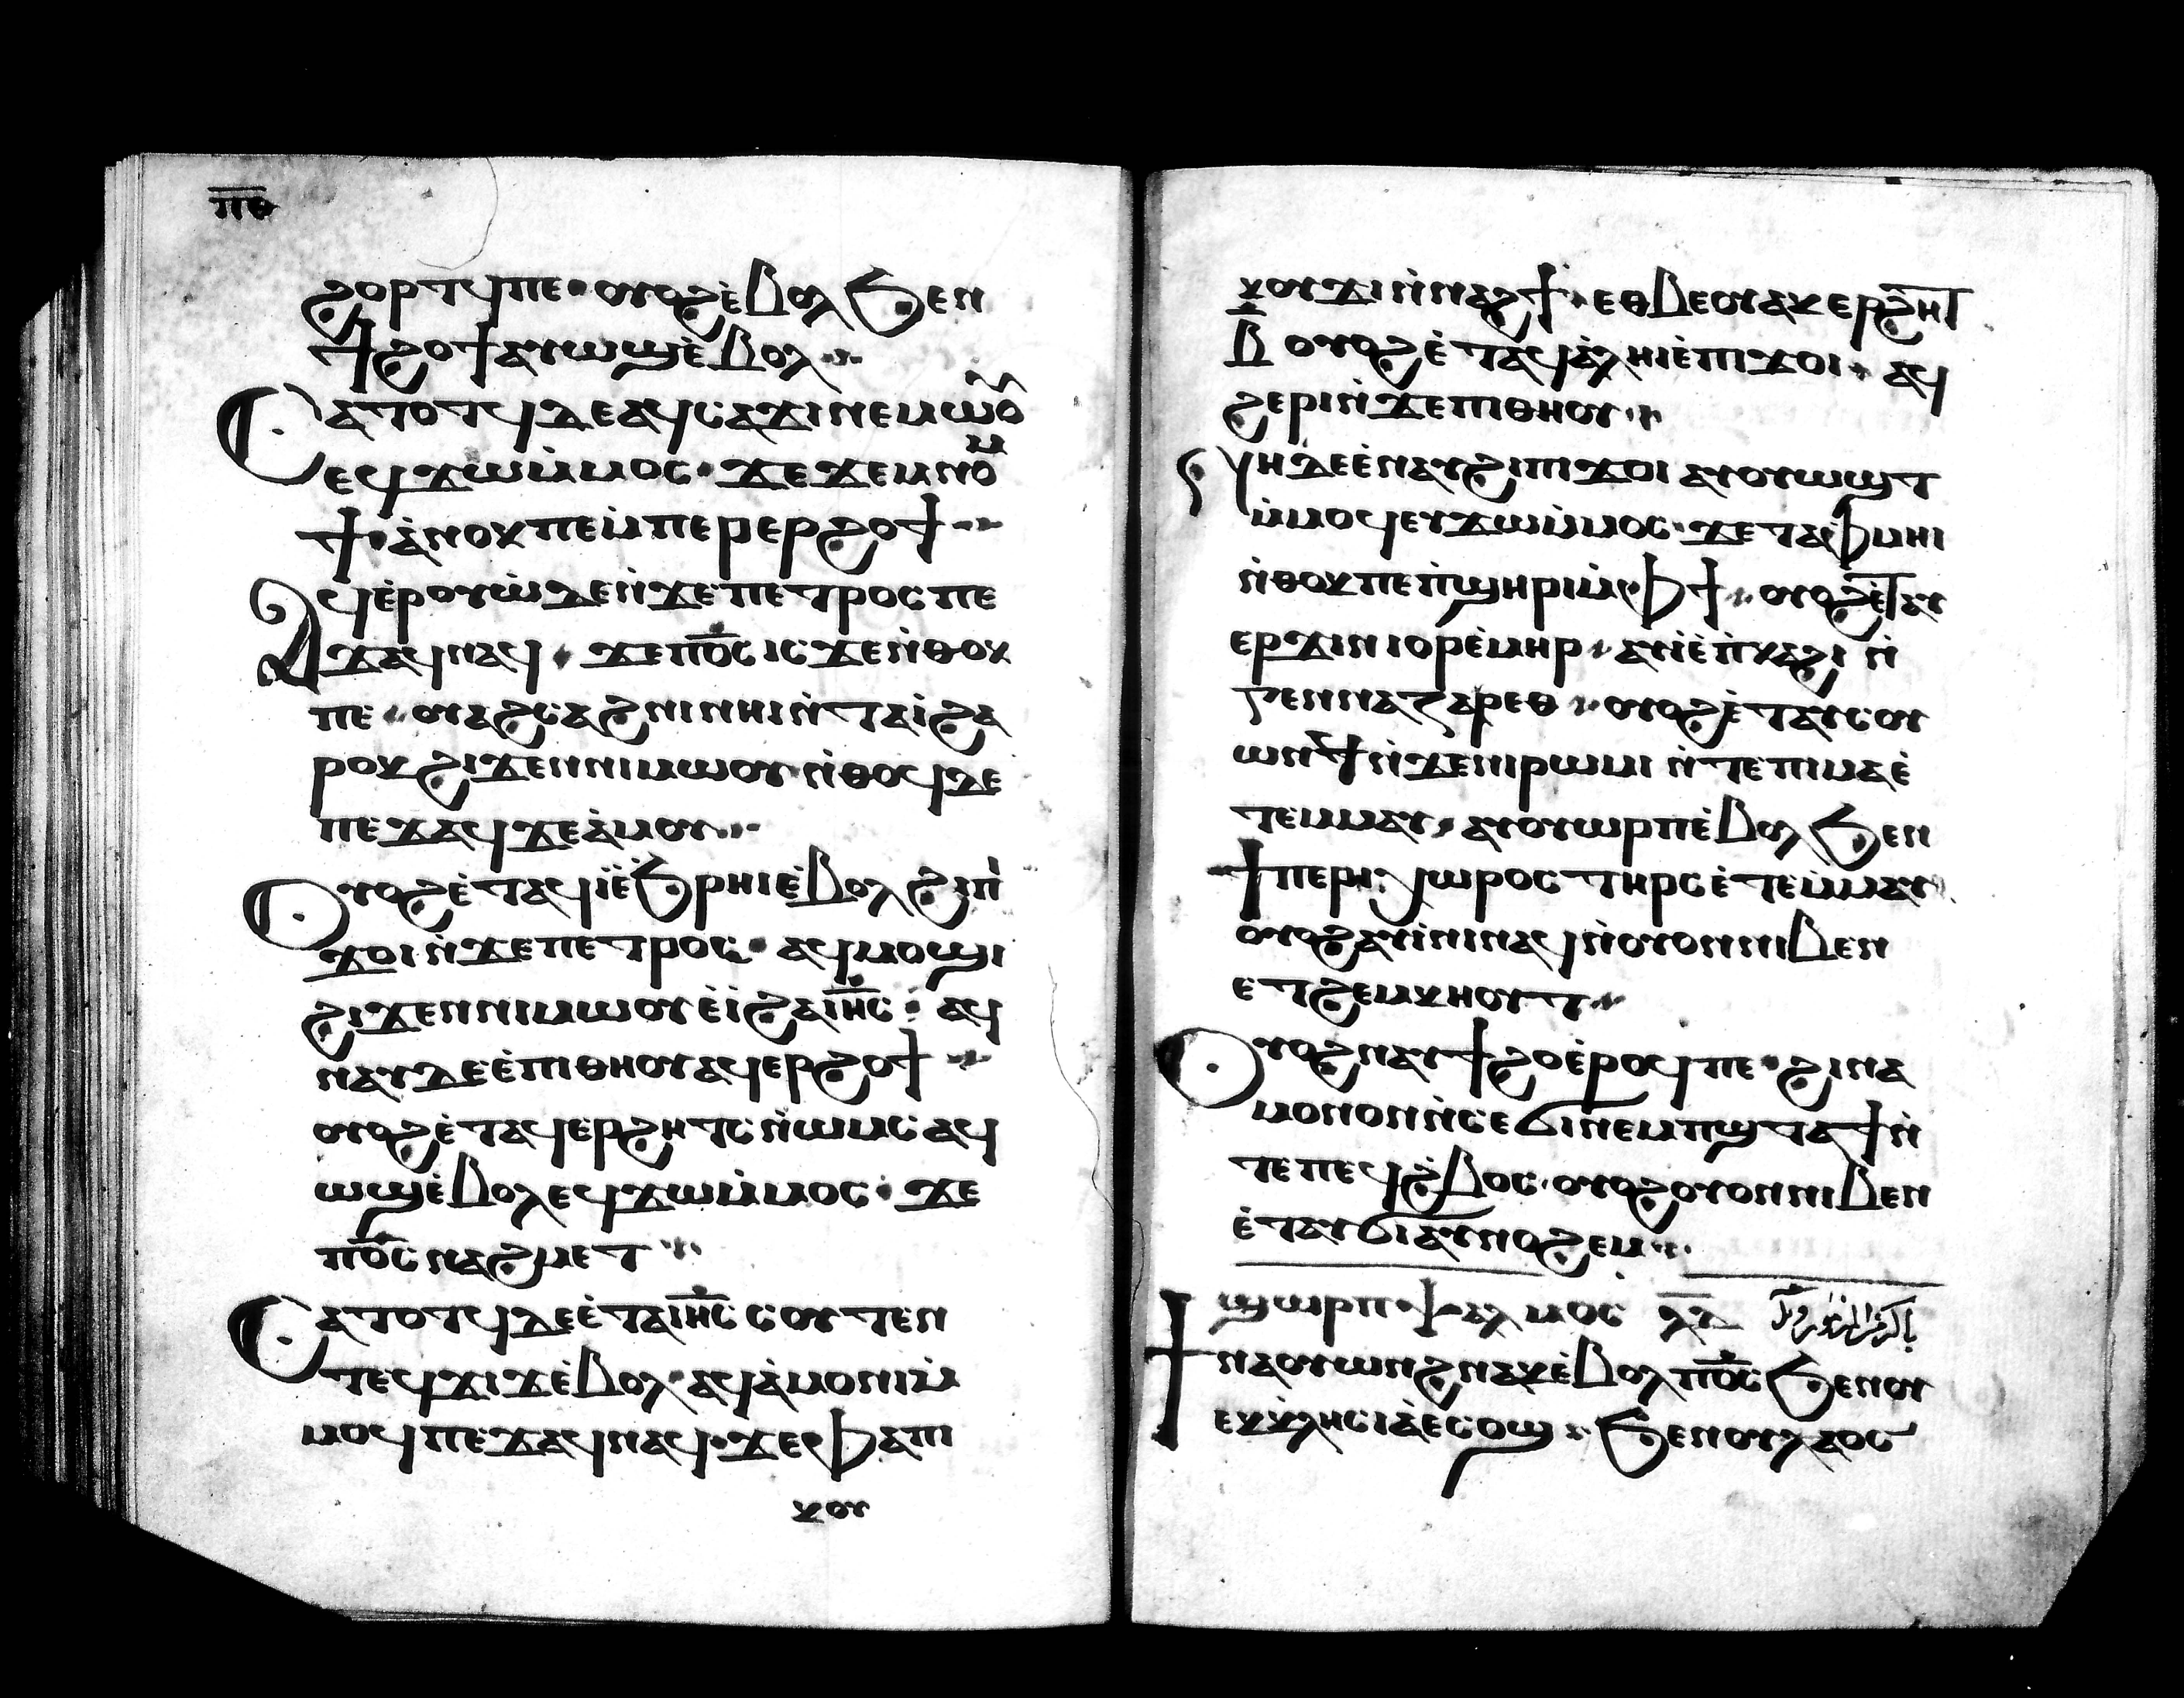 ⲡ̅ⲑ̅
ϩⲟⲣⲧϥ ⲡⲉ · ⲟⲩⲟϩ ⲉ̀ⲃⲟⲗ ϧⲉⲛ
ϯϩⲟϯ ⲁⲩⲱϣ ⲉ̀ⲃⲟⲗ ·
Ⲥⲁⲧⲟⲧϥ ⲇⲉ ⲁϥⲥⲁϫⲓ ⲛⲉⲙⲱⲟⲩ
ⲉϥϫⲱ ⲙ̀ⲙⲟⲥ · ϫⲉ ϫⲉⲙⲛⲟⲙ
ϯ · ⲁ̀ⲛⲟⲕ ⲡⲉ ⲙ̀ⲡⲉⲣⲉⲣϩⲟϯ ·
Ⲁϥⲉ̀ⲣⲟⲩⲱ̀ ⲇⲉ ⲛ̀ϫⲉ ⲡⲉⲧⲣⲟⲥ ⲡⲉ
ϫⲁϥ ⲛⲁϥ · ϫⲉ ⲡⲟ̅ⲥ̅ ⲓⲥϫⲉ ⲛ̀ⲑⲟⲕ
ⲡⲉ · ⲟⲩⲁϩⲥⲁϩⲛⲓ ⲛⲏⲓ ⲛ̀ⲧⲁⲓ̀ ϩⲁ
ⲣⲟⲕ ϩⲓϫⲉⲛ ⲛⲓⲙⲱⲟⲩ ⲛ̀ⲑⲟϥ ⲇⲉ
ⲡⲉϫⲁϥ ϫⲉ ⲁ̀ⲙⲟⲩ ·
Ⲟⲩⲟϩ ⲉ̀ⲧⲁϥⲓ̀ ⲉ̀ϧⲣⲏⲓ ⲉ̀ⲃⲟⲗ ϩⲓⲡⲓ
ϫⲟⲓ ⲛ̀ϫⲉ ⲡⲉⲧⲣⲟⲥ · ⲁϥⲙⲟϣⲓ
ϩⲓϫⲉⲛ ⲛⲓⲙⲱⲟⲩ ⲉ̀ⲓ̀ ϩⲁ ⲓⲏ̅ⲥ̅ · ⲁϥ
ⲛⲁⲩ ⲇⲉ ⲉ̀ⲡⲓⲑⲏⲟⲩ ⲁϥⲉⲣϩⲟϯ ·
ⲟⲩⲟϩ ⲉ̀ⲧⲁϥⲉⲣϩⲏⲧⲥ ⲛ̀ⲱⲙⲥ ⲁϥ
ⲱϣ ⲉ̀ⲃⲟⲗ ⲉϥϫⲱ ⲙ̀ⲙⲟⲥ · ϫⲉ
ⲡⲟ̅ⲥ̅ ⲛⲁϩⲙⲉⲧ ·
Ⲥⲁⲧⲟⲧϥ ⲇⲉ ⲉ̀ⲧⲁ ⲓⲏ̅ⲥ̅ ⲥⲟⲩⲧⲉⲛ
ⲧⲉϥϫⲓϫ ⲉ̀ⲃⲟⲗ · ⲁϥⲁ̀ⲙⲟⲛⲓ ⲙ̀
ⲙⲟϥ ⲡⲉϫⲁϥ ⲛⲁϥ · ϫⲉ ⲫⲁ ⲡⲓ
ⲕⲟⲩ
ⲕⲟⲩϫⲓ ⲛ̀ⲛⲁϩϯ · ⲉⲑⲃⲉⲟⲩ ⲁⲕⲉⲣϩⲏⲧ
ⲃ̅ ⲟⲩⲟϩ ⲉ̀ⲧⲁϥⲁ̀ⲗⲏⲓ ⲉ̀ⲡⲓϫⲟⲓ · ⲁϥ
ϩⲉⲣⲓ ⲛ̀ϫⲉ ⲡⲓⲑⲏⲟⲩ ·
Ⲛⲏ ⲇⲉ ⲉ̀ⲛⲁⲩϩⲓ ⲡⲓϫⲟⲓ ⲁⲩⲟⲩⲱϣⲧ
ⲙ̀ⲙⲟϥ ⲉⲩϫⲱ ⲙ̀ⲙⲟⲥ · ϫⲉ ⲧⲁⲫⲙⲏⲓ
ⲛ̀ⲑⲟⲕ ⲡⲉ ⲡ̀ϣⲏⲣⲓ ⲙ̀ⲫϯ · ⲟⲩⲟϩ ⲉ̀ⲧⲁⲩ
ⲉⲣϫⲓⲛⲓⲟⲣ ⲉ̀ⲙⲏⲣ · ⲁⲩⲓ̀ ⲉ̀ⲡ̀ⲕⲁϩⲓ ⲛ̀
ⲅⲉⲛⲛⲁⲍⲁⲣⲉⲑ · ⲟⲩⲟϩ ⲉ̀ⲧⲁⲩⲥⲟⲩ
ⲱⲛϥ ⲛ̀ϫⲉ ⲛⲓⲣⲱⲙⲓ ⲛ̀ⲧⲉ ⲡⲓⲙⲁ ⲉ̀
ⲧⲉⲙⲙⲁⲩ · ⲁⲩⲟⲩⲱⲣⲡ ⲉ̀ⲃⲟⲗ ϧⲉⲛ
ϯⲡⲉⲣⲓⲭⲱⲣⲟⲥ ⲧⲏⲣⲥ ⲉ̀ⲧⲉⲙ̀ⲙⲁⲩ
ⲟⲩⲟϩ ⲁⲩⲓ̀ⲛⲓ ⲛⲁϥ ⲛ̀ⲟⲩⲟⲛ ⲛⲓⲃⲉⲛ
ⲉⲧϩⲉⲙⲕⲏⲟⲩⲧ ·
Ⲟⲩⲟϩ ⲛⲁⲩϯϩⲟ ⲉ̀ⲣⲟϥ ⲡⲉ · ϩⲓⲛⲁ
ⲙⲟⲛⲟⲛ ⲛ̀ⲥⲉϭⲓ ⲛⲉⲙ ⲡϣⲧⲁϯ ⲛ̀
ⲧⲉ ⲡⲉϥϩ̀ⲃⲟⲥ · ⲟⲩⲟϩ ⲟⲩⲟⲛ ⲛⲓⲃⲉⲛ
ⲉ̀ⲧⲁⲩϭⲓ ⲁⲩⲛⲟϩⲉⲙ ·
ϣⲱⲣⲡ ⲯⲁⲗⲙⲟⲥ ⲗ̅ⲇ̅
Ϯⲛⲁⲟⲩⲱⲛϩ ⲛⲁⲕ ⲉ̀ⲃⲟⲗ ⲡⲟ̅ⲥ̅ ϧⲉⲛ ⲟⲩ
ⲉⲕⲕ̀ⲗⲏⲥⲓⲁ̀ ⲉⲥⲟϣ · ϧⲉⲛ ⲟⲩⲗⲁⲟⲥ